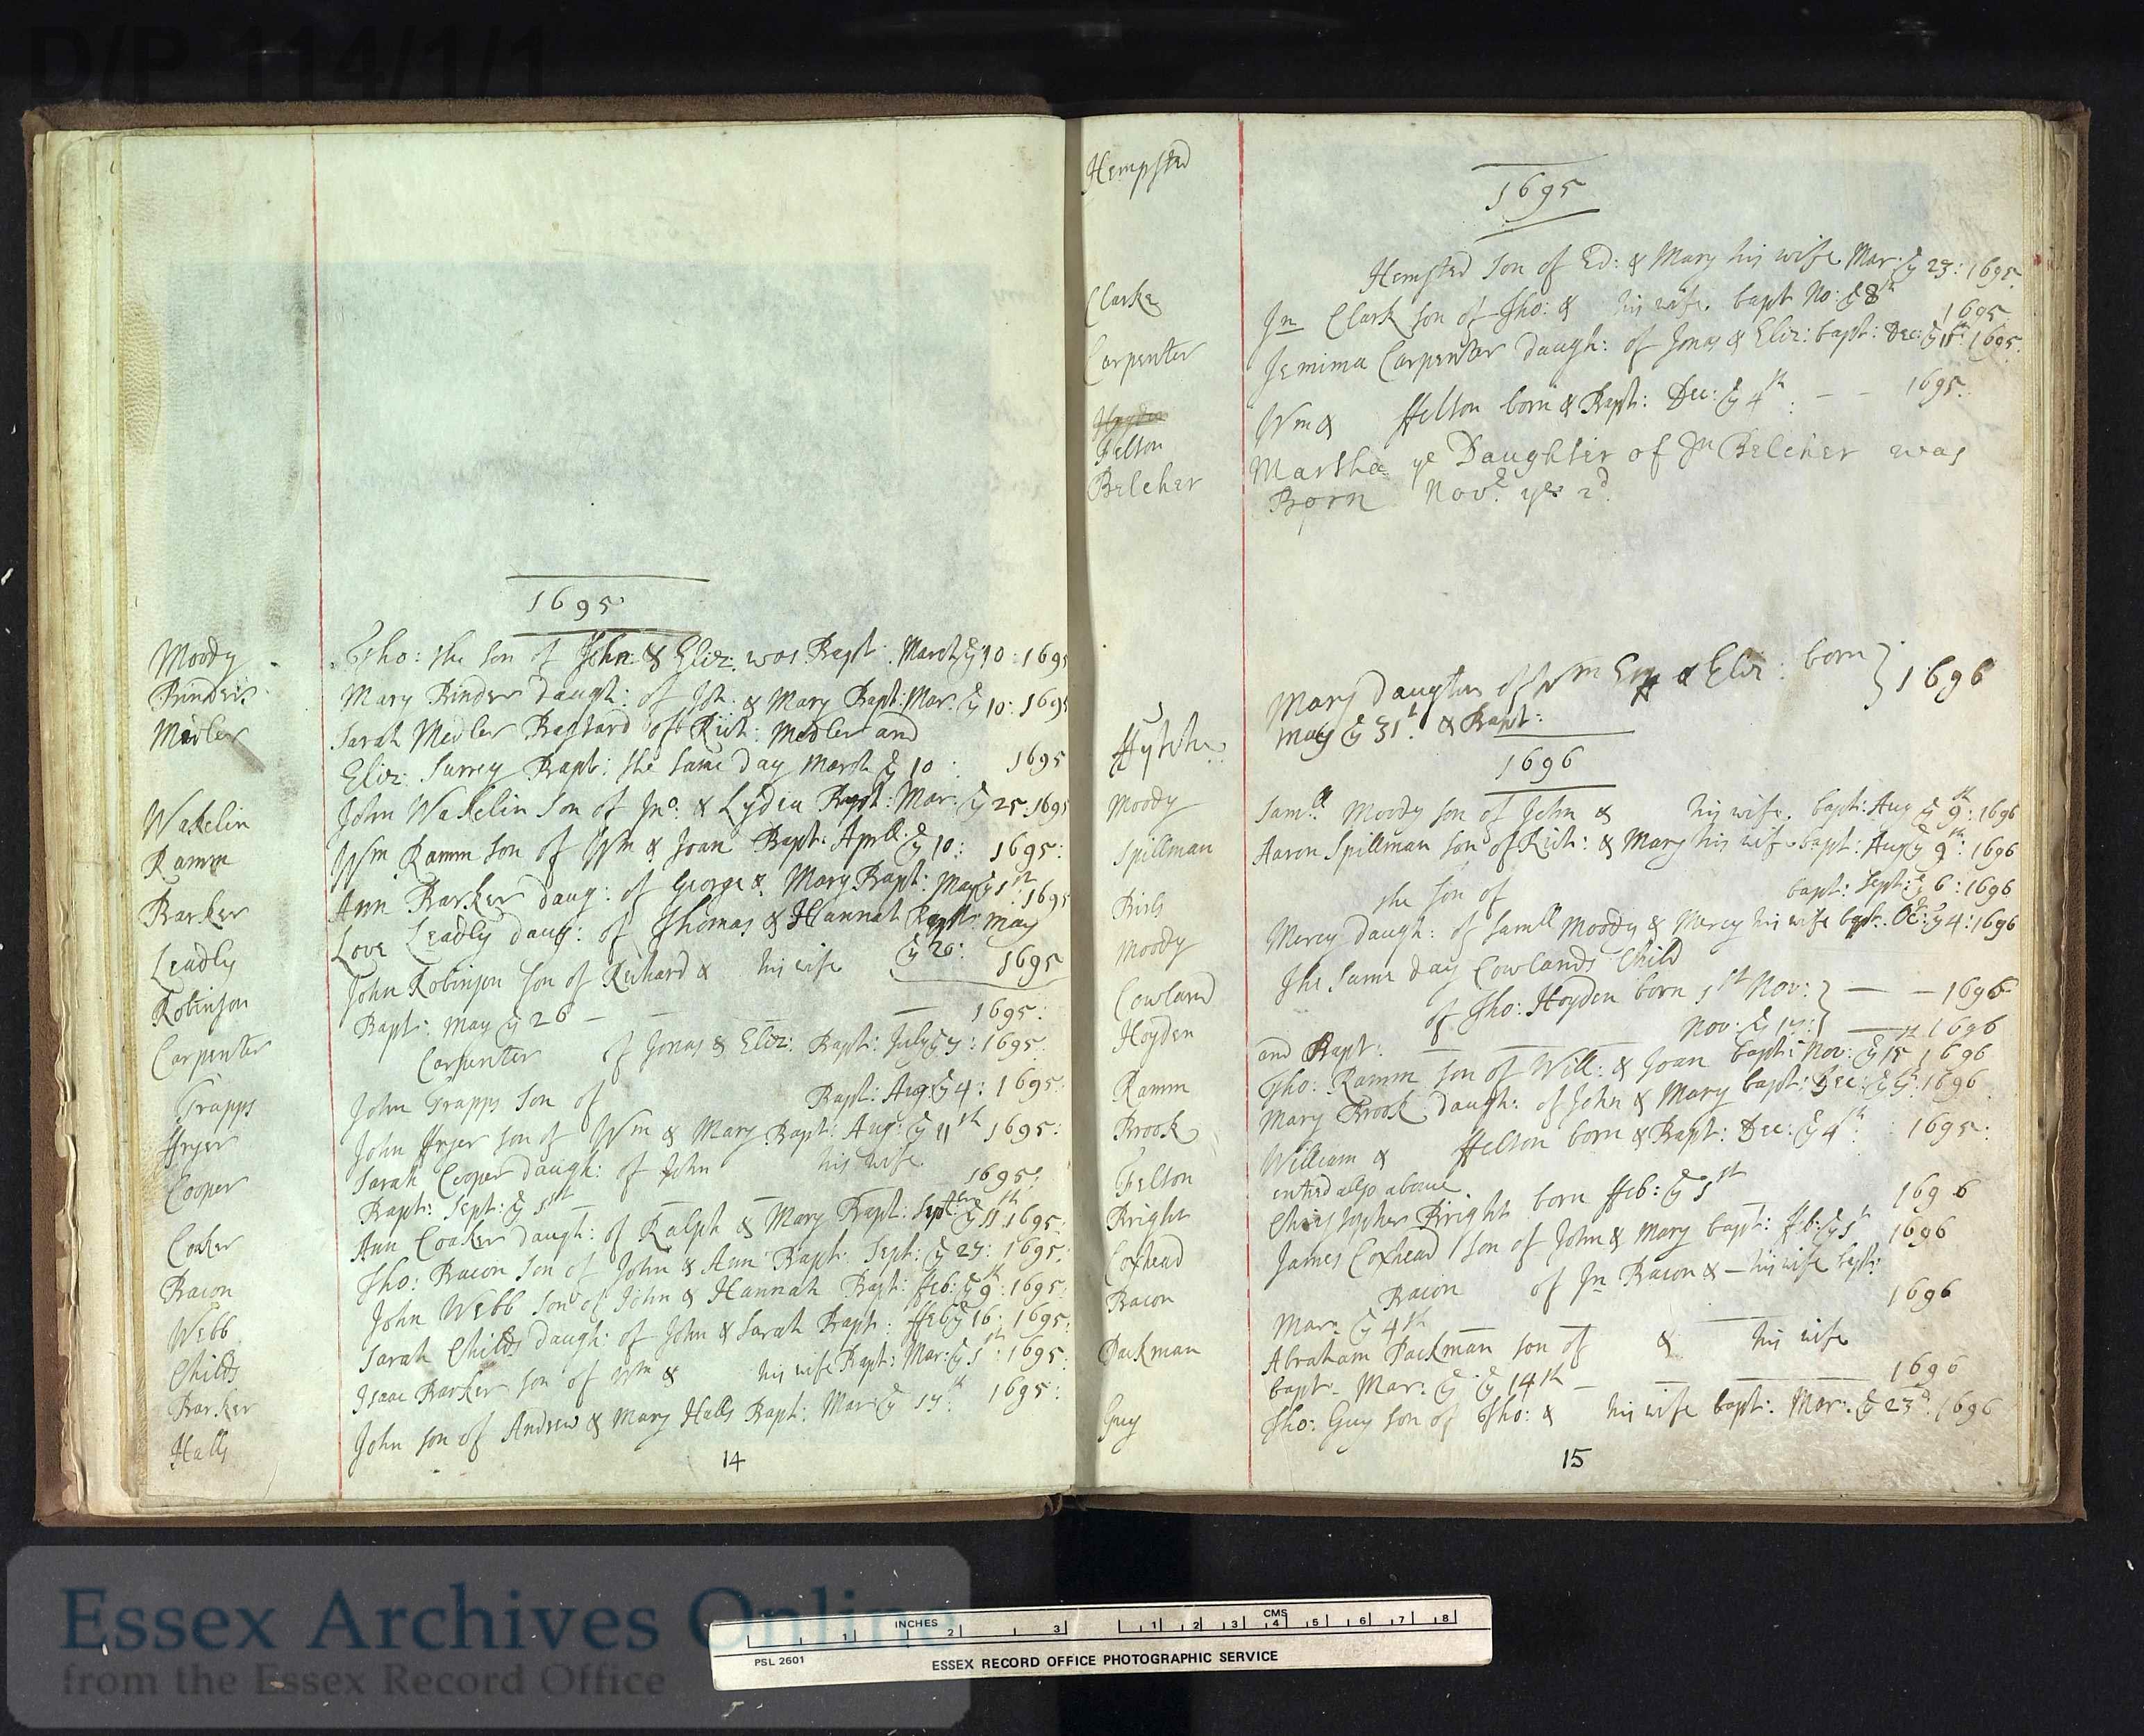 D/P 114/1/1
1695
Moody Tho: the son of John & Eliz: was Bapt: March ye 10: 1695
Binder Mary Binder daugh: of Joh: & Mary Bapt: Mar: ye 10: 1695
Medler Sarah Medler Bastard of Rich: Medler and
Eliz: Surrey Bapt: the same day March ye 10: 1695
Wakelin John Wakelin Son of Jno. & Lydia Bapt: Mar: ye 25 1695
Ramm Wm Ramm son of Wm & Joan Bapt: Aprll: ye 10: 1695:
Barker Ann Barker daug: of George & Mary Bapt: May ye 1st 1695
Leadly Love Leadly daug: of Thomas & Hannah Bapt: May
ye 26: 1695
Robinson John Robinson son of Richard & his wife
Bapt: May ye 26 – – – – 1695:
Carpenter Carpenter of Jonas & Eliz: Bapt: July ye 7: 1695:
Trapps John Trapps Son of Bapt: Aug: ye 4: 1695:
ffryer John ffryer son of Wm & Mary Bapt: Aug: ye 11th 1695:
Cooper Sarah Cooper daugh: of John his wife
Bapt: Sept: ye 1st – – – – 1695:
Coaker Ann Coaker daugh: of Ralph & Mary Bapt: Septbr ye 11th 1695:
Bacon Tho: Bacon Son of John & Ann Bapt: Sept: ye 27: 1695:
Webb John Webb Son of John & Hannah Bapt: ffeb: ye 9th: 1695:
Childs Sarah Childs daugh: of John & Sarah Bapt: ffeb ye 16: 1695:
Barker Isaac Barker son of Wm & his wife Bapt: Mar: ye 1st: 1695:
Halls John son of Andrew & Mary Halls Bapt: Mar: ye 17th 1695:
14
Hempsted
1695
Hemsted Son of Ed: & Mary his wife Mar: ye 23: 1695.
Clarke Jn Clark son of Tho: & his wife. bapt No: ye 8th 1695
Carpenter Jemima Carpenter daugh: of Jonas & Eliz: bapt: Dec: ye 1st: 1695:
Felton Wm & ffelton born & Bapt: Dec: ye 4th: – – 1695:
Belcher Martha ye Daughter of Jn Belcher was
Born Novr. ye 2d.
Mary Daughter of Wm & Eliz: born } 1696
May ye 31st & Bapt:
1696
Moody Samll Moody son of John & his wife. bapt: Aug ye 9th: 1696
Spillman Aaron Spillman son of Rich: & Mary his wife bapt: Aug ye 9th: 1696
the son of bapt: Sept: ye 6: 1696
Moody Mercy daugh: of Samll Moody & Mercy his wife bapt. Oc: ye 4: 1696
Cowland The Same day Cowlands Child
Hoyden of Tho: Hoyden born 1st Nov: } – – 1696
and Bapt: – – – Nov: ye } – 1696
Ramm Tho: Ramm son of Will: & Joan bapt: Nov: ye 15 1696
Brook Mary Brook daugh: of John & Mary bapt: Dec: ye 1696
Felton William & ffelton born & Bapt: Dec: ye 4th: 1695:
enterd also above
Bright Christopher Bright born ffeb: ye 1st 1696
Coxhead James Coxhead son of John & Mary bapt: ffeb: ye 1696
Bacon Bacon of Jn Bacon & – his wife bapt:
Mar: ye 4th – – 1696
Packman Abraham Packman son of & his wife
bapt. Mar. ye ye 14th – – – 1696
Guy Tho: Guy son of Tho: & his wife bapt: Mar: ye 23d: 1696
15
Essex Archives Online
from the Essex Record Office
INCHES 1 2 3 CMS 1 2 3 4 5 6 7 8
PSL 2601 ESSEX RECORD OFFICE PHOTOGRAPHIC SERVICE